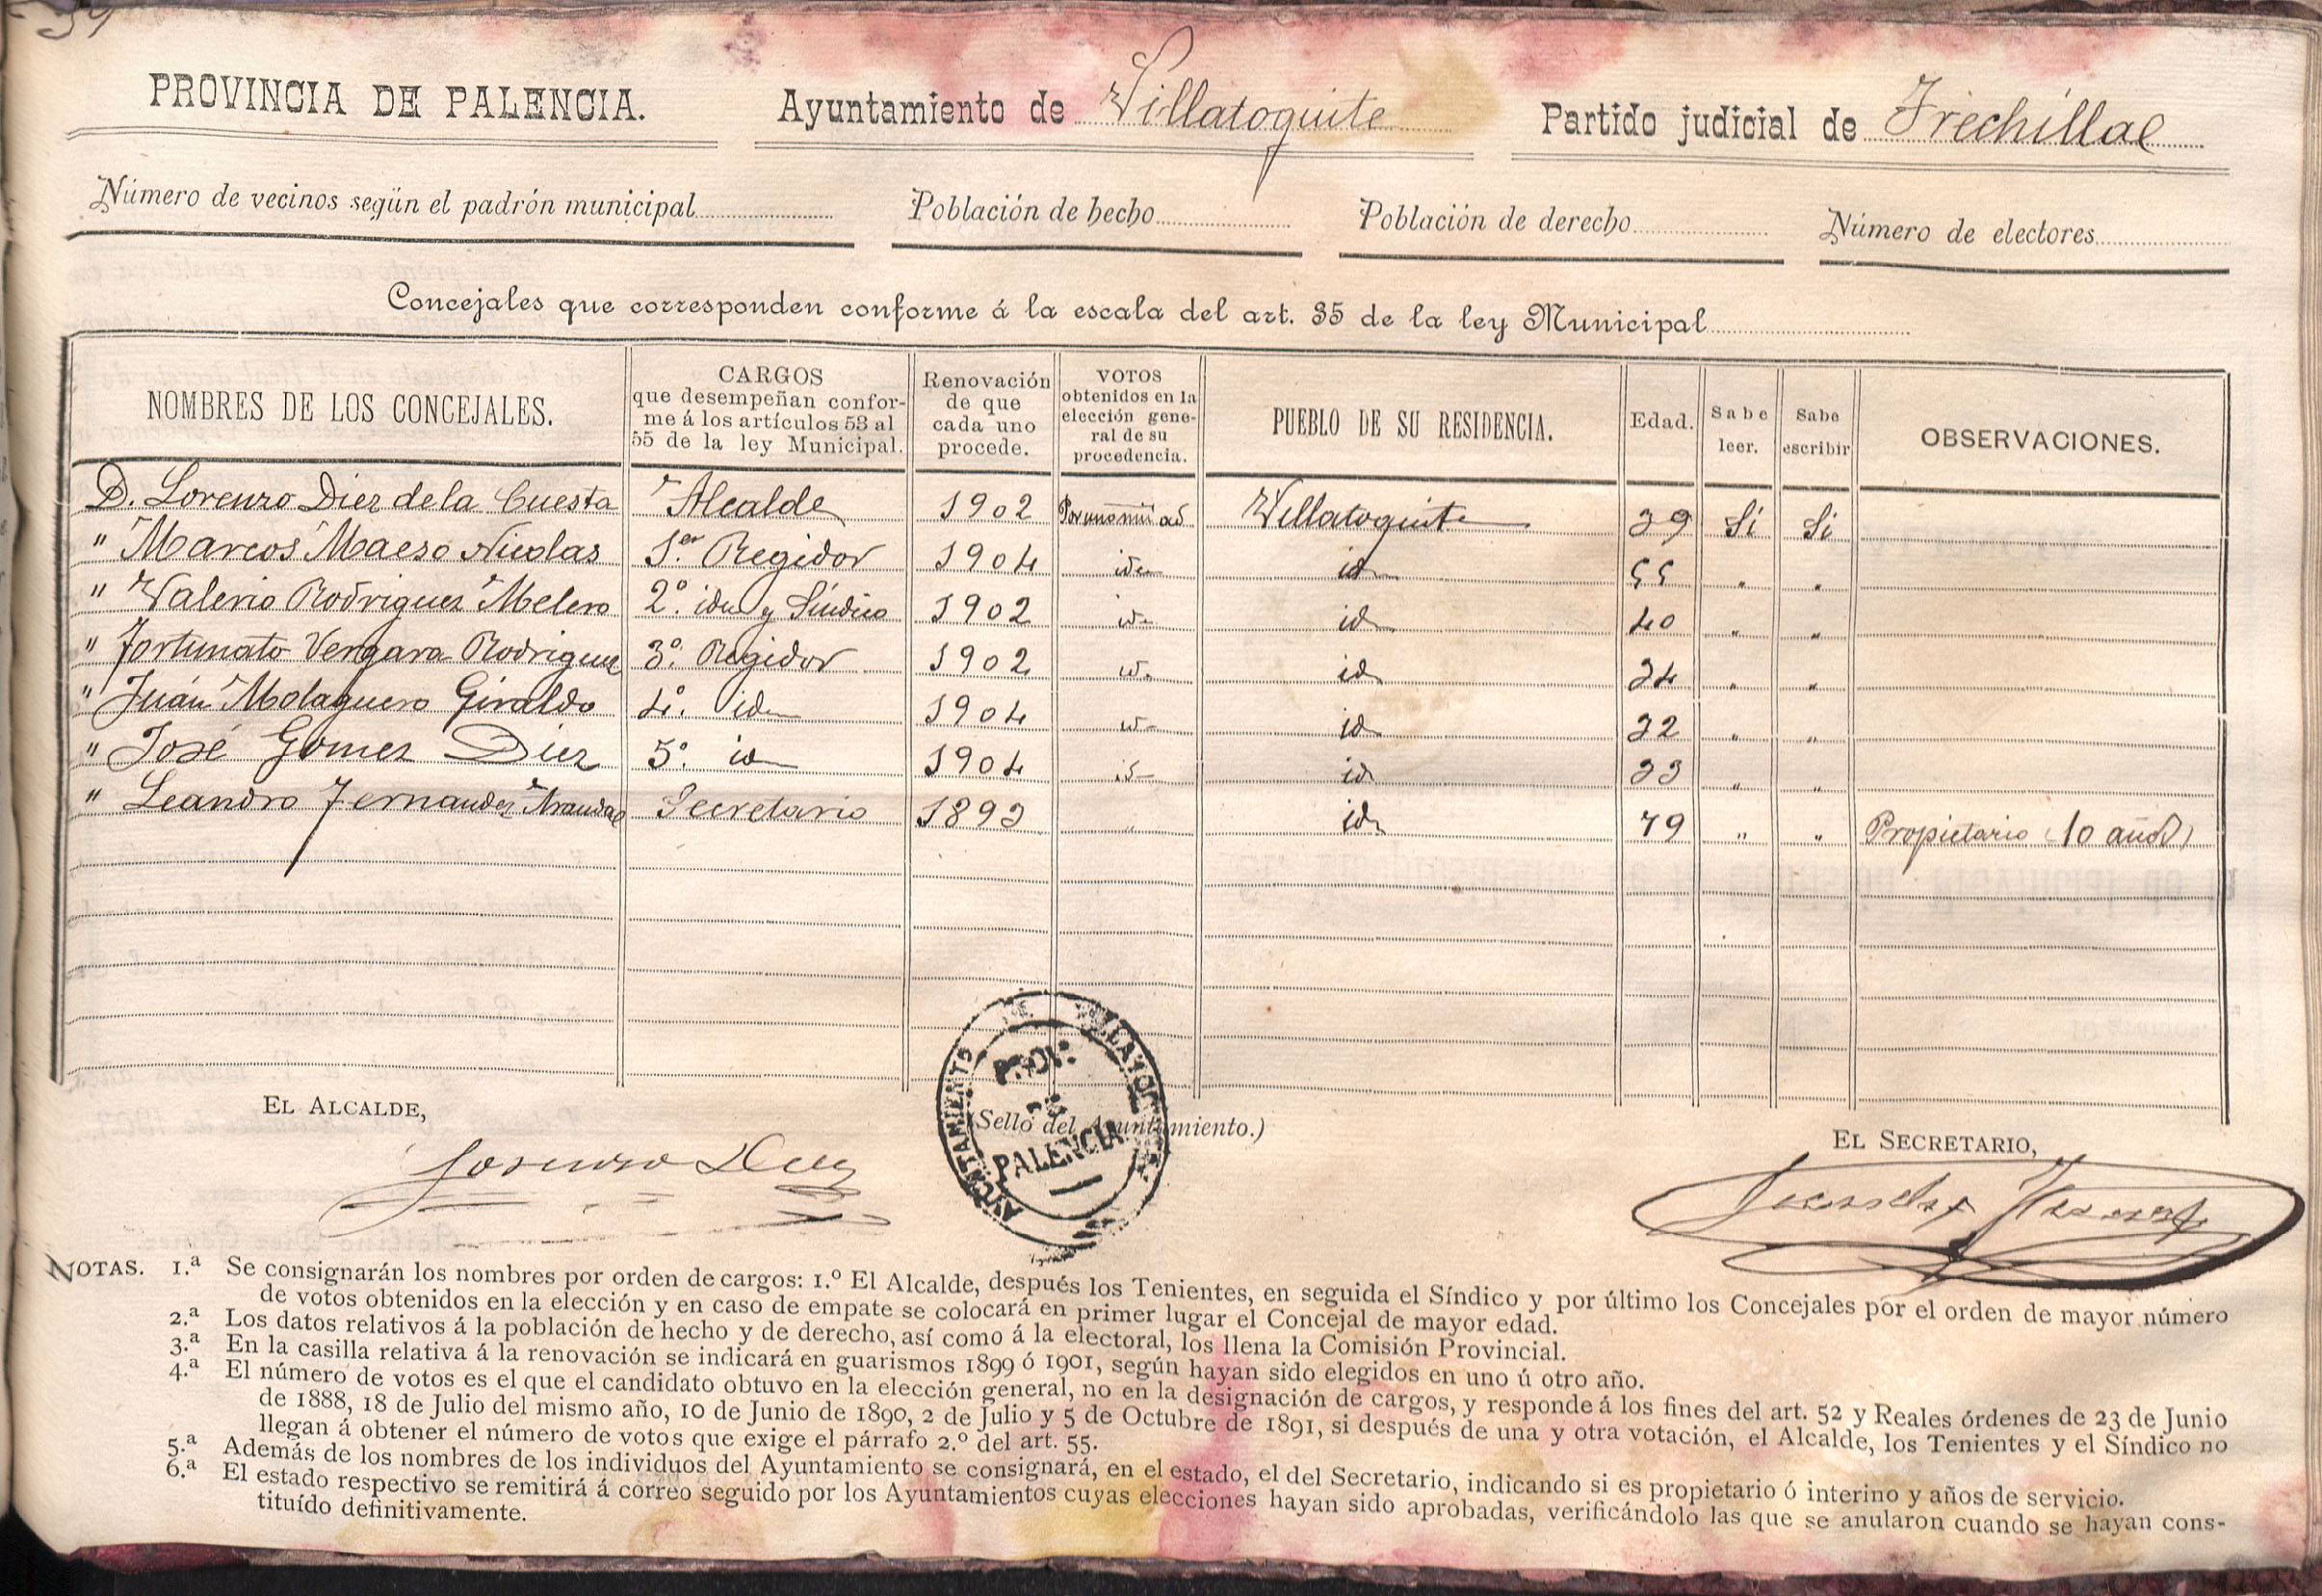 39
PROVINCIA DE PALENCIA. Ayuntamiento de Villatoquite Partido judicial de Frechilla
Número de vecinos según el padrón municipal Población de hecho Población de derecho Número de electores
Concejales que corresponden conforme á la escala del art. 35 de la ley Municipal
NOMBRES DE LOS CONCEJALES.
CARGOS
que desempeñan confor-
me á los artículos 53 al
55 de la ley Municipal.
Renovación
de que
cada uno
procede.
VOTOS
obtenidos en la
elección gene-
ral de su
procedencia.
PUEBLO DE SU RESIDENCIA.
Edad.
Sabe
leer.
Sabe
escribir
OBSERVACIONES.
D. Lorenzo Diez de la Cuesta Alcalde 1902 Villatoquite 39 Si Si
" Marcos Maeso Nicolas 1er Regidor 1904 id 55 " "
" Valerio Rodriguez Melero 2º. idm y Síndico 1902 id id 40 " "
" Fortunato Vergara Rodriguez 3º. Regidor 1902 id id 34 " "
" Juán Molaguero Giraldo 4º. idm 1904 id id 32 " "
" José Gomez Diez 5º. id 1904 id id 33 " "
" Leandro Fernandez Secretario 1893 " id 79 " " Propietario (10 años)
EL ALCALDE,
(Sello del Ayuntamiento.)
EL SECRETARIO,
Lorenzo Diez
AYUNTAMIENTO DE VILLATOQUITE
PROV.
DE
PALENCIA
NOTAS. 1.ª Se consignarán los nombres por orden de cargos: 1.º El Alcalde, después los Tenientes, en seguida el Síndico y por último los Concejales por el orden de mayor número
de votos obtenidos en la elección y en caso de empate se colocará en primer lugar el Concejal de mayor edad.
2.ª Los datos relativos á la población de hecho y de derecho, así como á la electoral, los llena la Comisión Provincial.
3.ª En la casilla relativa á la renovación se indicará en guarismos 1899 ó 1901, según hayan sido elegidos en uno ú otro año.
4.ª El número de votos es el que el candidato obtuvo en la elección general, no en la designación de cargos, y responde á los fines del art. 52 y Reales órdenes de 23 de Junio
de 1888, 18 de Julio del mismo año, 10 de Junio de 1890, 2 de Julio y 5 de Octubre de 1891, si después de una y otra votación, el Alcalde, los Tenientes y el Síndico no
llegan á obtener el número de votos que exige el párrafo 2.º del art. 55.
5.ª Además de los nombres de los individuos del Ayuntamiento se consignará, en el estado, el del Secretario, indicando si es propietario ó interino y años de servicio.
6.ª El estado respectivo se remitirá á correo seguido por los Ayuntamientos cuyas elecciones hayan sido aprobadas, verificándolo las que se anularon cuando se hayan cons-
tituído definitivamente.